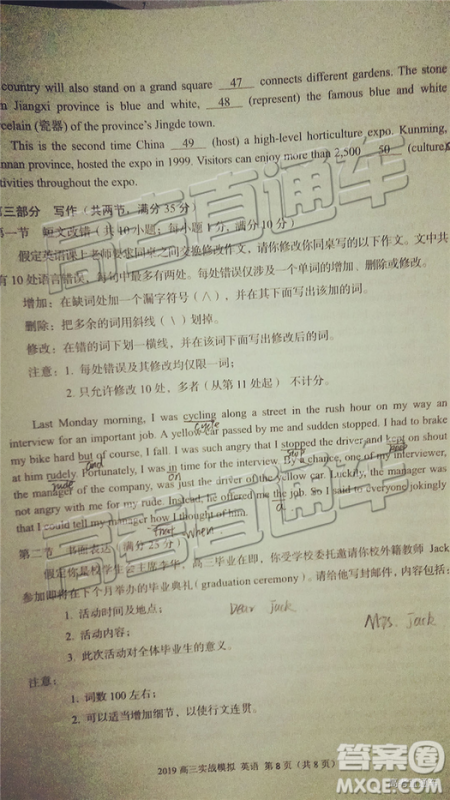 country will also stand on a grand square 47 connects different gardens. The stone
n Jiangxi province is blue and white, 48 (represent) the famous blue and white
celain (瓷器) of the province's Jingde town.
This is the second time China 49 (host) a high-level horticulture expo. Kunming,
nnan province, hosted the expo in 1999. Visitors can enjoy more than 2,500 50 (culture)
tivities throughout the expo.
第三部分 写作(共两节,满分35分)
第一节 短文改错(共10小题;每小题1分,满分10分)
假定英语课上老师要求同桌之间交换修改作文,请你修改你同桌写的以下作文。文中共
有10处语言错误,每句中最多有两处。每处错误仅涉及一个单词的增加、删除或修改。
增加:在缺词处加一个漏字符号(∧),并在其下面写出该加的词。
删除:把多余的词用斜线(\)划掉。
修改:在错的词下划一横线,并在该词下面写出修改后的词。
注意:1. 每处错误及其修改均仅限一词;
2. 只允许修改10处,多者(从第11处起)不计分。
Last Monday morning, I was cycling along a street in the rush hour on my way an
interview for an important job. A yellow car passed by me and sudden stopped. I had to brake
my bike hard but of course, I fall. I was such angry that I stopped the driver and kept on shout
at him rudely. Fortunately, I was in time for the interview. By a chance, one of my interviewer,
the manager of the company, was just the driver of the yellow car. Luckily, the manager was
not angry with me for my rude. Instead, he offered me the job. So I said to everyone jokingly
that I could tell my manager how I thought of him.
cycle
and
stop
keep
rude
on
a
that
when
第二节 书面表达(满分25分)
假定你是校学生会主席李华,高三毕业在即,你受学校委托邀请你校外籍教师 Jack
参加即将在下个月举办的毕业典礼(graduation ceremony)。请给他写封邮件,内容包括:
1. 活动时间及地点;
2. 活动内容;
3. 此次活动对全体毕业生的意义。
Dear Jack
Mrs. Jack
注意:
1. 词数100左右;
2. 可以适当增加细节,以使行文连贯。
2019 高三实战模拟 英语 第8页(共8页)
高考直通车
答案圈
MXQE.COM